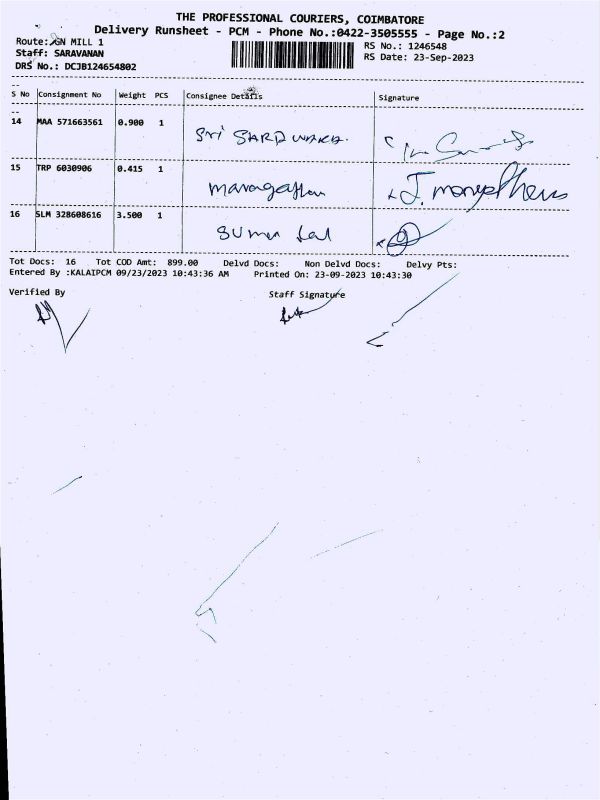 THE PROFESSIONAL COURIERS, COIMBATORE
Delivery Runsheet - PCM - Phone No.:0422-3505555 - Page No.:2
Route: GN MILL 1
RS No.: 1246548
Staff: SARAVANAN
RS Date: 23-Sep-2023
DRS No.: DCJB124654802
S No Consignment No Weight PCS Consignee Details Signature
14 MAA 571663561 0.900 1
Sri
15 TRP 6030906 0.415 1
16 SLM 328608616 3.500 1
Suman Lal
Tot Docs: 16 Tot COD Amt: 899.00 Delvd Docs: Non Delvd Docs: Delvy Pts:
Entered By :KALAIPCM 09/23/2023 10:43:36 AM Printed On: 23-09-2023 10:43:30
Verified By Staff Signature